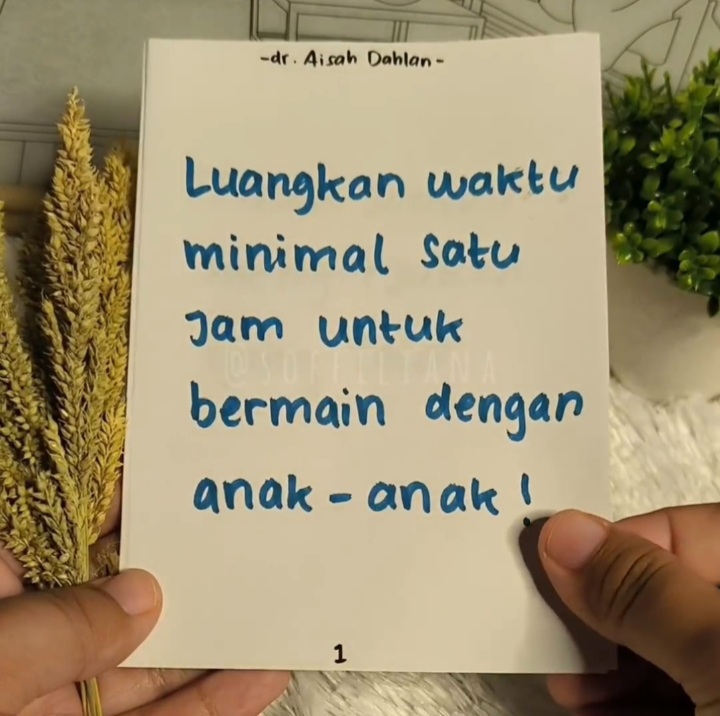 -dr. Aisah Dahlan-
Luangkan waktu
minimal satu
Jam untuk
@SOFFILIANA
bermain dengan
anak-anak!
1